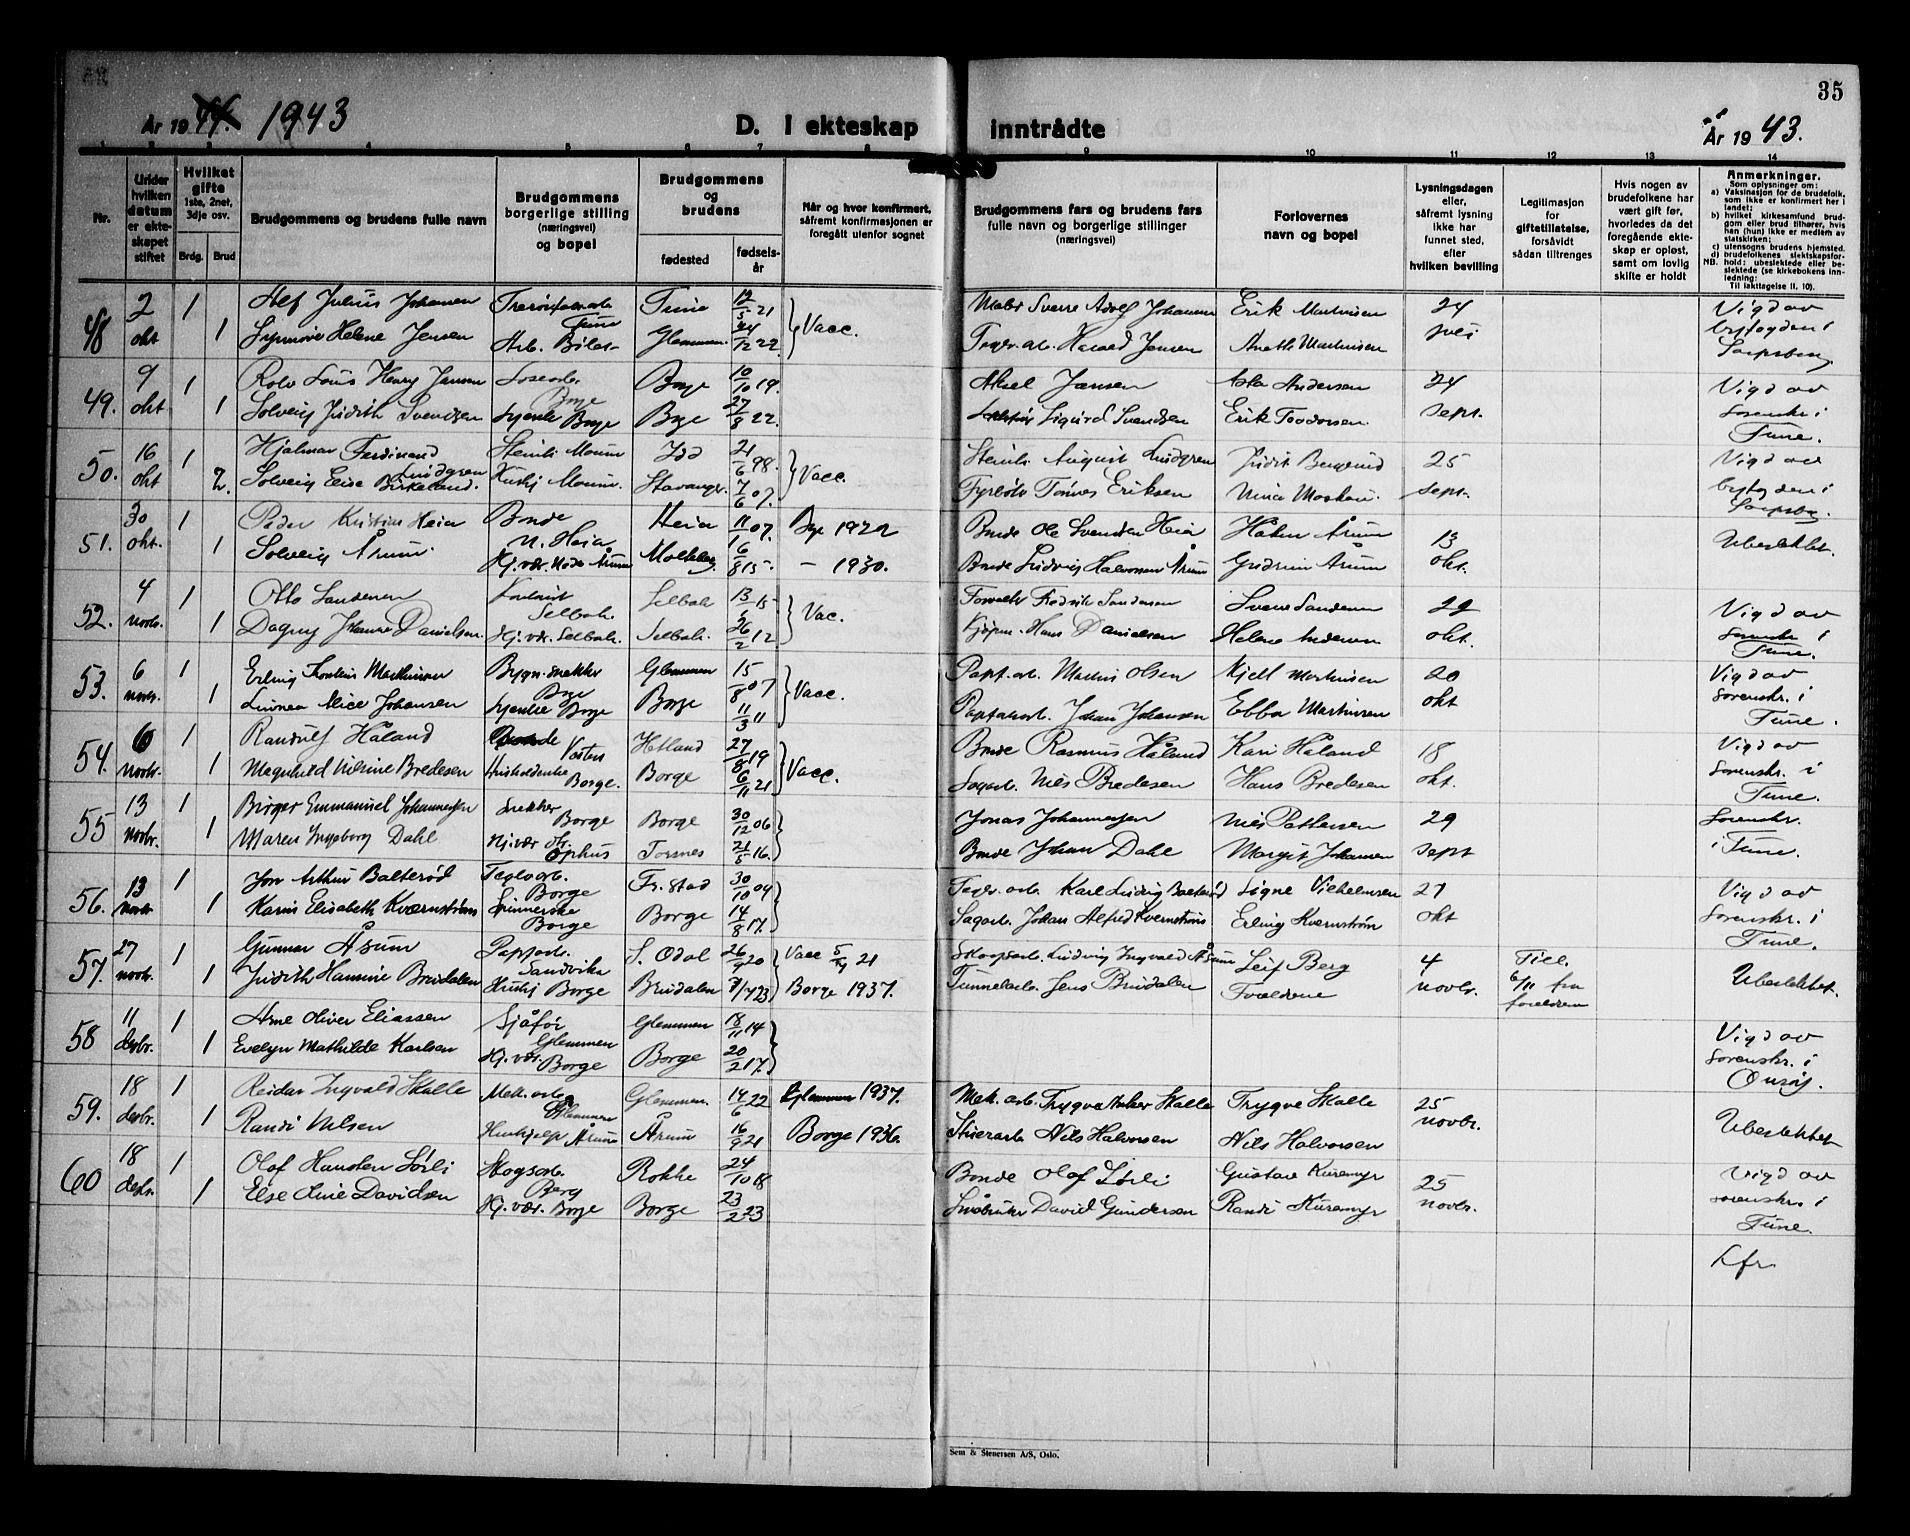 35
År 19 44. 1943
D. I ekteskap inntrådte
År 19 43.
1 2 3 4 5 6 7 8 9 10 11 12 13 14
Nr.
Under hvilken datum er ekteskapet stiftet
Hvilket gifte 1ste, 2net, 3dje osv.
Brdg. Brud
Brudgommens og brudens fulle navn
Brudgommens borgerlige stilling (næringsvei) og bopel
Brudgommens og brudens
fødested fødselsår
Når og hvor konfirmert, såfremt konfirmasjonen er foregått utenfor sognet
Brudgommens fars og brudens fars fulle navn og borgerlige stillinger (næringsvei)
Forlovernes navn og bopel
Lysningsdagen eller, såfremt lysning ikke har funnet sted, efter hvilken bevilling
Legitimasjon for giftetillatelse, forsåvidt sådan tiltrenges
Hvis nogen av brudefolkene har vært gift før, hvorledes da det foregående ekteskap er opløst, samt om lovlig skifte er holdt
Anmerkninger.
Som oplysninger om:
a) Vaksinasjon for de brudefolk, som ikke er konfirmert her i landet;
b) hvilket kirkesamfund brudgom eller brud tilhører, hvis han (hun) ikke er medlem av statskirken;
c) utensogns brudens hjemsted.
d) brudefolkenes slektskapsforhold: ubeslektede eller beslektede (se kirkebokens innledning: Til iakttagelse II, 10).
NB.
48 2 okt 1 Alf Julius Johansen Tune 12/5 21 Vacc. Sverre Adolf Johansen Erik Martinsen 24 Vigd av
1 Synnøve Helene Jensen Arb. Glemmen 24/12 22 Teglv. arb. Harald Jensen Aneth Martinsen byfogden i Sarpsborg
49. 9 okt 1 Rolv Louis Henry Jansen Losearb. Borge Borge 10/10 19 Aksel Jansen Asta Andersen 24 sept. Vigd av
1 Solveig Judith Svendsen Syerske Borge Borge 27/8 22. Sigurd Svendsen Erik Teodorsen sorenskr. i Tune.
50. 16 okt 1 Hjalmar Ferdinand Lindgren Steinh. Moum Idd 21/6 98. Vacc. Steinh. August Lindgren Judit Berglund 25 sept. Vigd av
2. Solveig Elise Birkeland. Hushj Moum. Stavanger 7/6 07. Fyrbøter Tønnes Eriksen byfogden i Sarpsbg.
51. 30 okt. 1 Peder Kristian Heia Bonde N. Heia Heia 11/1 07. Bge 1922 Bonde Ole Svendsen Heia Håkon Årum 13 okt. Ubeslektet.
1 Solveig Årum. Hj. vær. Årum 6/8 15 — 1930. Bonde Ludvig Halvorsen Årum Gudrun Årum
52. 4 novbr. 1 Otto Sandersen Selbak. Selbak 13/6 15 Vac. Fredrik Sandersen Sverre Sandersen 22 okt. Vigd av
1 Dagny Johanne Danielsen. Hj. vær. Selbak. Selbak. 26/2 12 Hans Danielsen Helene Andersen sorenskr i Tune.
53. 6 novbr. 1 Erling Martinsen Bygn. snekker Bge Glemmen 15/8 07 Vacc. Papf. arb. Martin Olsen Kjell Martinsen 20 okt Vigd av
1 Linnea Alice Johansen Syerske Borge Borge 11/3 11 Papfarb. Johan Johansen Ebba Martinsen sorenskr. i Tune.
54. 6 novbr. 1 Randulf Håland Bonde Hetland 27/8 19 Vacc. Bonde Rasmus Håland Kari Håland 18 okt. Vigd av
1 Magnhild Nilsine Bredesen Husholderske Borge. Borge 6/11 21 Sagarb. Nils Bredesen Hans Bredesen sorenskr. i Tune.
55 13 novbr. 1 Birger Emmanuel Johannessen Snekker Borge Borge 30/12 06 Jonas Johannessen Nils Pettersen 29 sept Sorenskr.
1 Maren Ingeborg Dahl Hj. vær Ophus Torsnes 21/5 16. Bonde Johan Dahl Margit Johansen i Tune.
56. 13 novbr 1 Jon Arthur Balterød Teglv. arb. Borge Fr. stad 30/10 09 Teglv. arb. Karl Ludvig Balterød Signe Vilhelmsen 27 okt Vigd av
1 Karin Elisabeth Kvernstrøm Spinnerske Borge Borge 14/8 17. Sagarb. Johan Alfred Kvernstrøm Erling Kvernstrøm Sorenskr. i Tune.
57. 27 novbr. 1 Gunnar Årum Papfarb. Sandvika S. Odal 26/9 20 Vacc 5/4 21 Skogsarb. Ludvig Ingvald Årum Leif Berg 4 novbr. Till. 6/11 fra foreldrene Ubeslektet.
1 Judith Hannine Brudalen Hushj Borge Brudalen 7/4 23 Borge 1937. Tunnelarb. Jens Brudalen Foreldrene
58 11 desbr. 1 Arne Oliver Eliassen Sjåfør Glemmen Glemmen 18/11 14 Vigd av
1 Evelyn Mathilde Karlsen Hj. vær. Borge Borge 20/2 17. Sorenskr. i Onsøy.
59. 18 desbr. 1 Reidar Ingvald Skalle Mek. arb. Glemmen Glemmen. 14/6 22 Glemmen 1937. Mek. arb. Trygve Anker Skalle Trygve Skalle 25 novbr. Ubeslektet
1 Randi Nilsen Hushjelp Årum Årum 16/9 21 Borge 1936. Nils Halvorsen Nils Halvorsen
60 18 desbr. 1 Olaf Hansten Sørli Skogsarb. Berg Rokke 24/10 18 Bonde Olaf Sørli Gustav Kuremyr 25 novbr. Vigd av
1 Else Marie Davidsen Hj. vær. Borge Borge 23/2 23 Småbruker David Gundersen Randi Kuremyr sorenskr. i Tune.
Kfr
Sem & Stenersen A/S, Oslo.